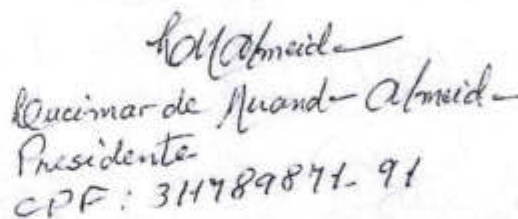 Lucimar de Miranda Almeida
Presidente
CPF: 311789871-91